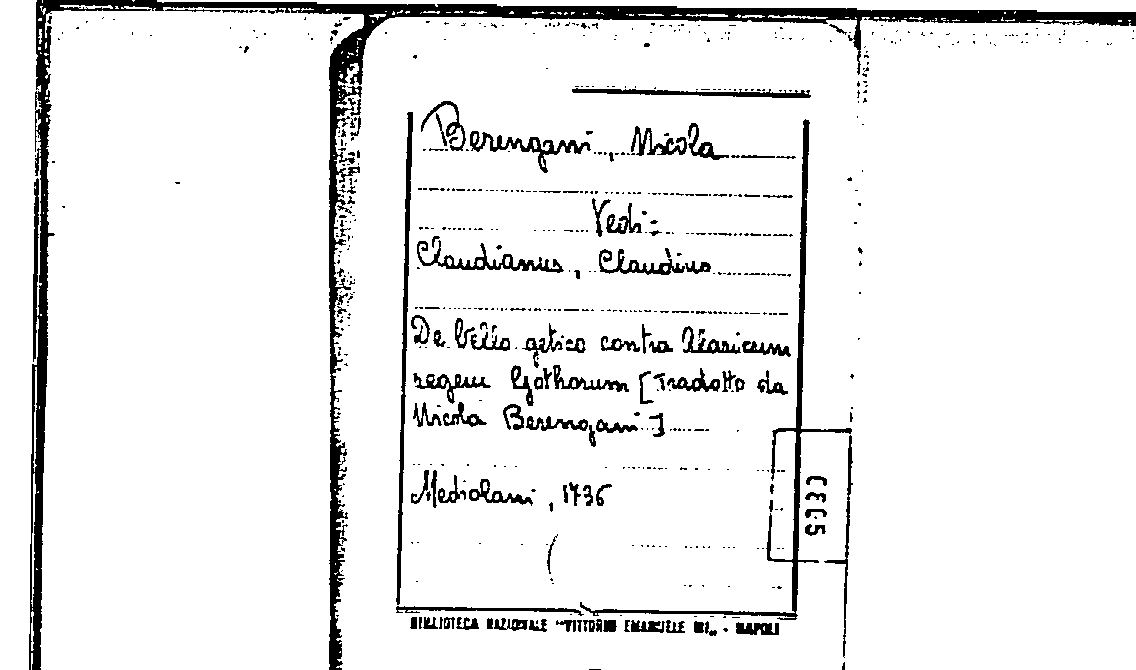 Berengani, Nicola
Vedi:
Claudianus, Claudius
De bello getico contra Alaricum
regem Gothorum [Tradotto da
Nicola Berengani]
Mediolani, 1736
BIBLIOTECA NAZIONALE "VITTORIO EMANUELE III" - NAPOLI